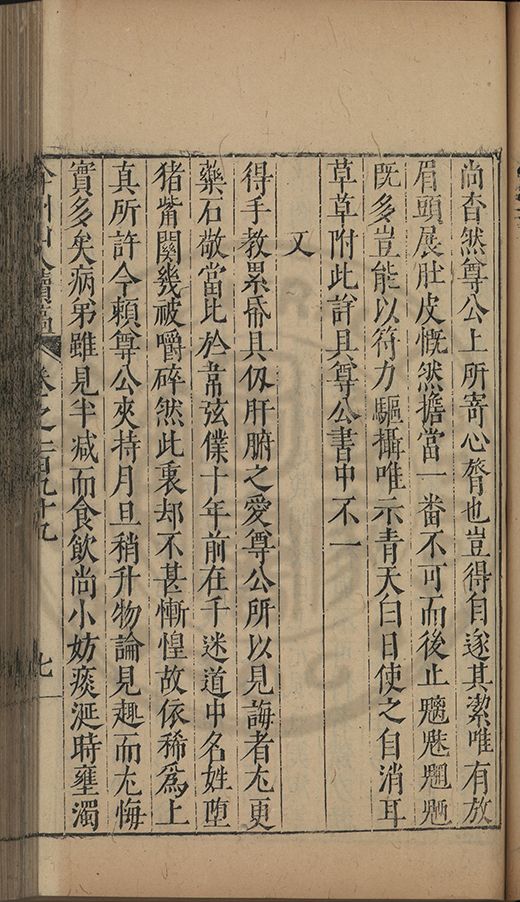 尚杳然尊公上所寄心膂也豈得自遂其潔唯有放
眉頭展肚皮慨然擔當一番不可而後止魑魅魍魎
既多豈能以符力驅攝唯示青天白日使之自消耳
草草附此詳具尊公書中不一
又
得手教累帋具仭肝腑之愛尊公所以見誨者尤更
藥石敬當比於韋弦僕十年前在千迷道中名姓墮
猪觜關幾被嚼碎然此裏却不甚慚惶故依稀爲上
真所許今頼尊公夾持月旦稍升物論見趣而尤悔
實多矣病弟雖見半减而食飲尚小妨痰涎時壅濁
弇州山人續稿
卷之一百九十九
七